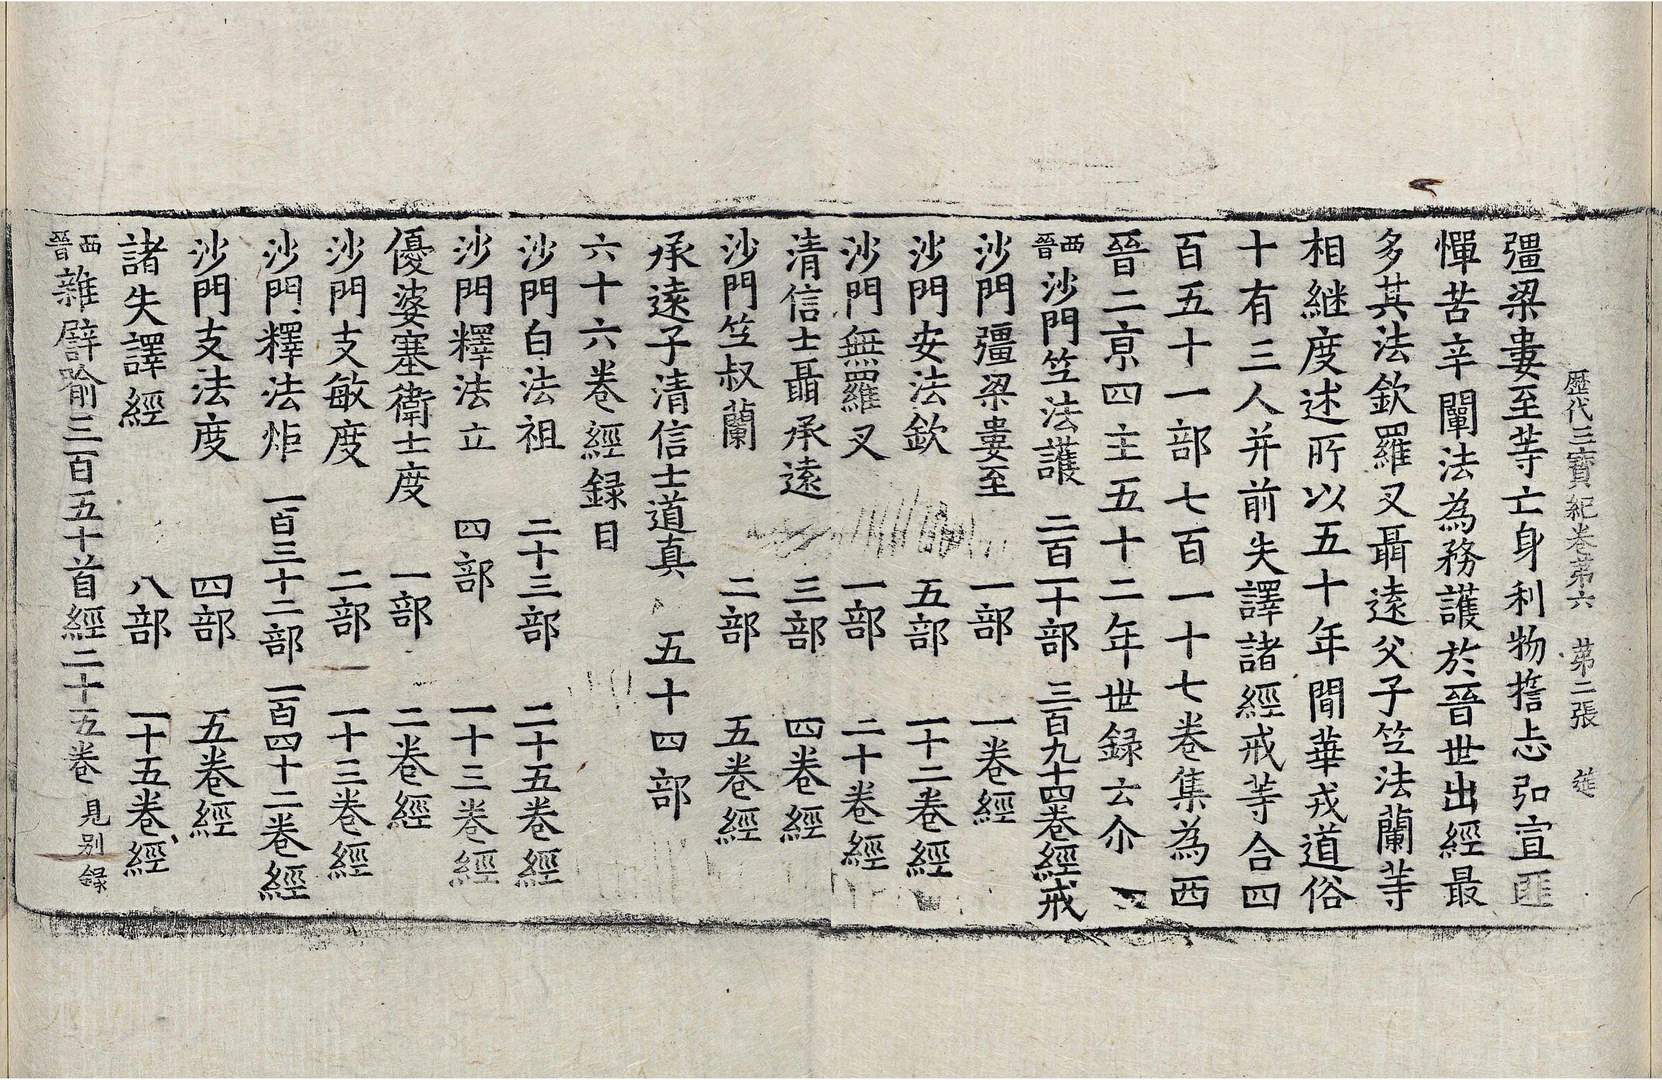 歷代三寶紀卷第六　第二張
彊梁婁至等亡身利物擔忘弘宣匪
憚苦辛闡法為務護於晉世出經最
多其法欽羅叉聶遠父子竺法蘭等
相継度述所以五十年間華戎道俗
十有三人并前失譯諸經戒等合四
百五十一部七百一十七卷集為西
晉二京四主五十二年世録云尒
西晉沙門竺法護　二百一十部　三百九十四卷經戒
沙門彊梁婁至　一部　一卷經
沙門安法欽　五部　一十二卷經
沙門無羅叉　一部　二十卷經
清信士聶承遠　三部　四卷經
沙門竺叔蘭　二部　五卷經
承遠子清信士道真　五十四部
六十六卷經録目
沙門白法祖　二十三部　二十五卷經
沙門釋法立　四部　一十三卷經
優婆塞衛士度　一部　二卷經
沙門支敏度　二部　一十三卷經
沙門釋法炬　一百三十二部　一百四十二卷經
沙門支法度　四部　五卷經
諸失譯經　八部　一十五卷經
西晉雜譬喻三百五十首經二十五卷見別錄